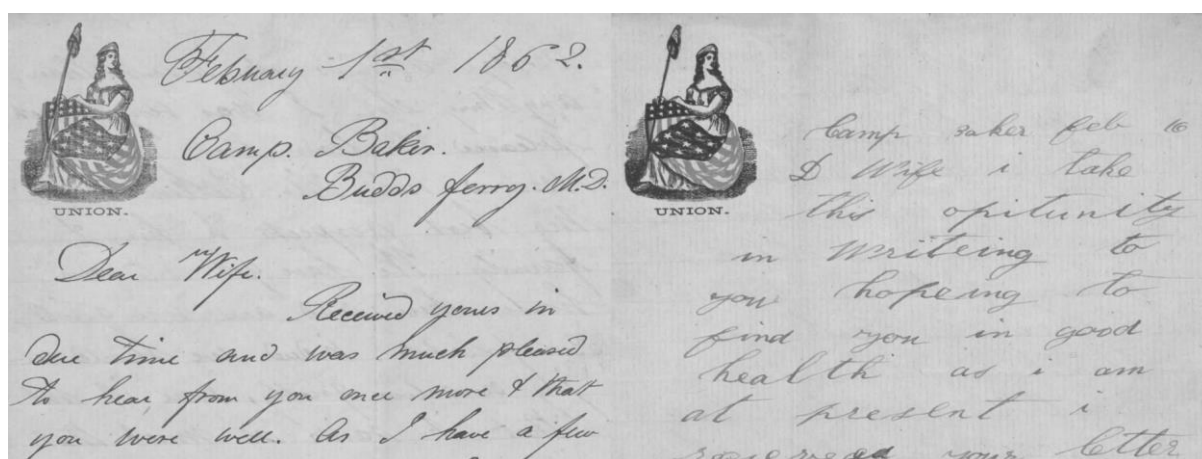 February 1st 1862.
Camp. Baker.
Budds ferry. M.D.
UNION.
Dear Wife.
Received yours in
due time and was much pleased
to hear from you once more & that
you were well. As I have a few
Camp Baker feb 16
D Wife i take
UNION.
this opitunity
in Writeing to
you hopeing to
find you in good
health as i am
at present i
your letter